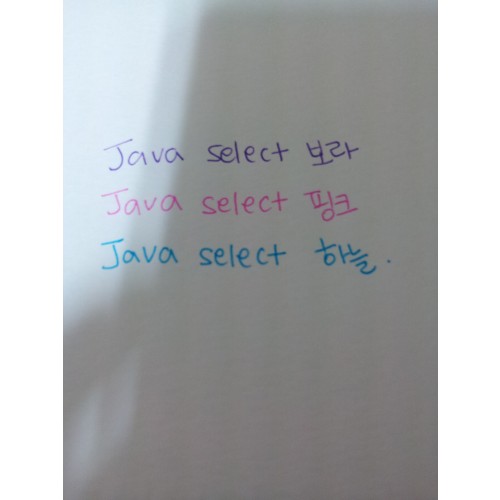 Java select 보라
Java select 핑크
Java select 하늘.